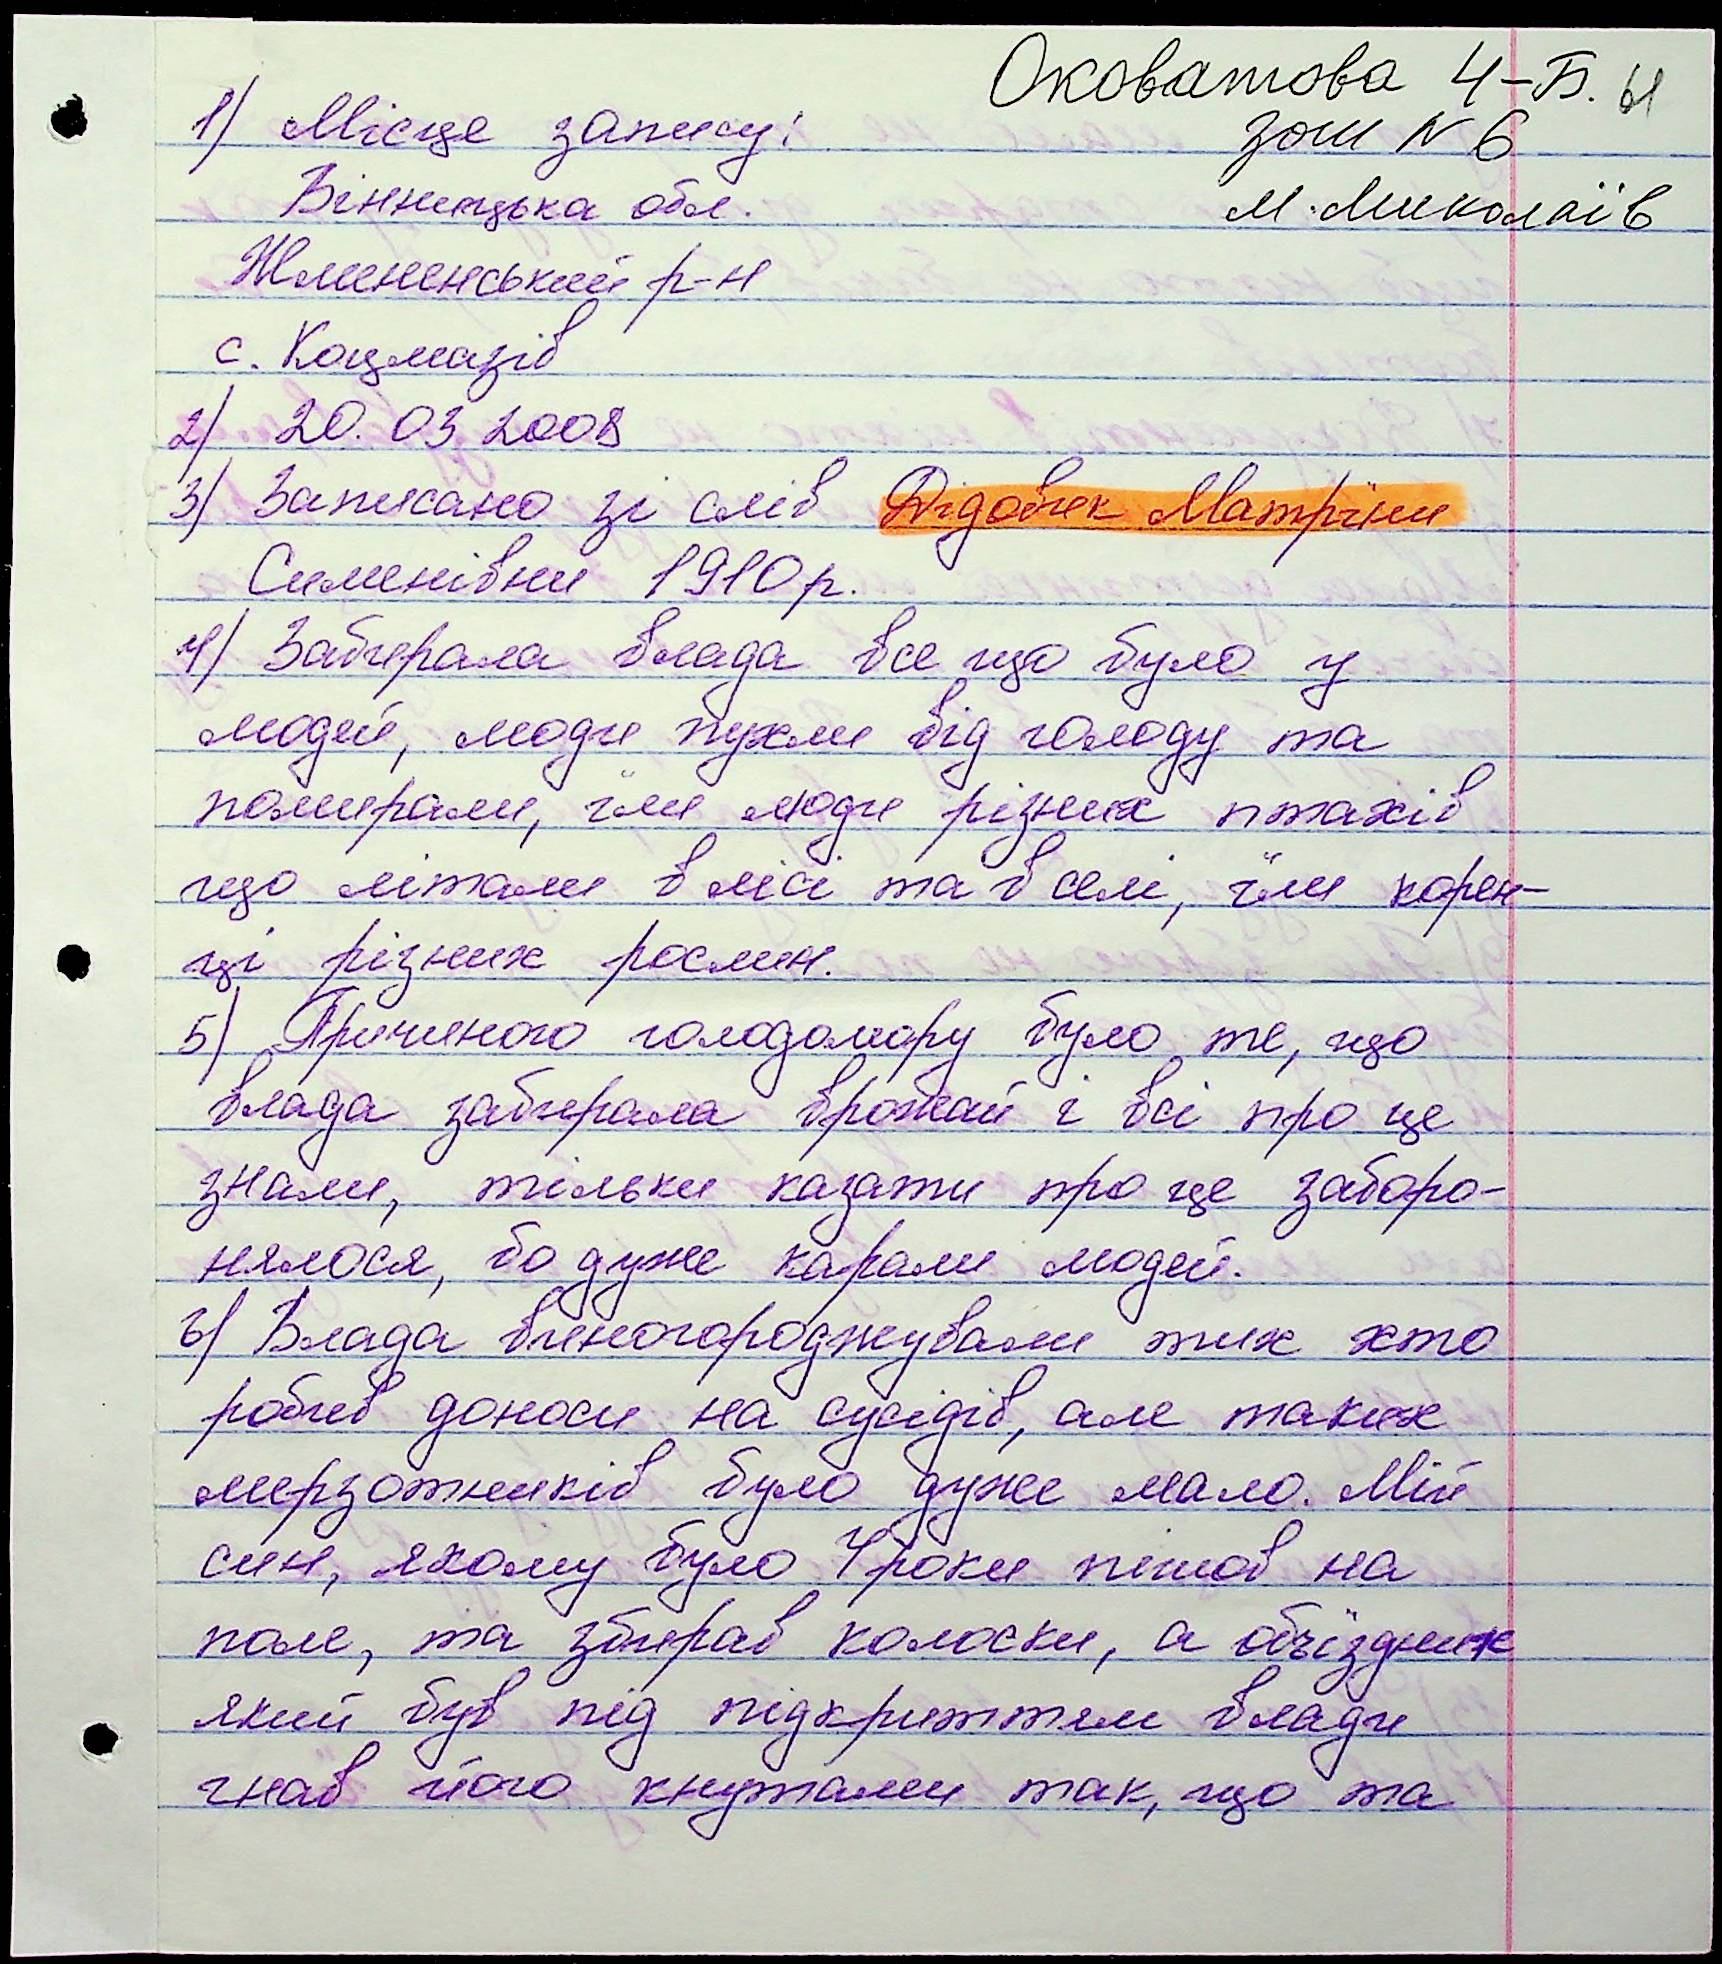 Оковатова 4-Б.
ЗОШ № 6
м. Миколаїв
1) Місце запису:
Вінницька обл.
Жмеренський р-н
с. Коцмазів
2) 20.03 2008
3) Записано зі слів Дідовик Матріни
Сименівни 1910р.
4) Забирала влада все що було у
людей, люди пухли від голоду та
помирали, їли люди різних птахів
що літали в лісі та в селі, їли корен-
ці різних рослин.
5) Причиною голодомору було те, що
влада забирала врожай і всі про це
знали, тільки казати про це заборо-
нялося, бо дуже карали людей.
6) Влада виногороджували тих хто
робив доноси на сусідів, але таких
мерзотників було дуже мало. Мій
син, якому було 4 роки пішов на
поле, та збирав колоски, а обїздник
який був під підкриттям влади
гнав його кнутами так, що та